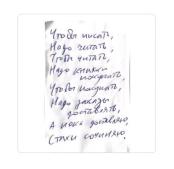 Чтобы писать,
Надо читать,
Чтобы читать,
Надо книжки
покупать,
Чтобы покупать,
Надо заказы
доставлять,
А пока доставляю,
Стихи сочиняю.